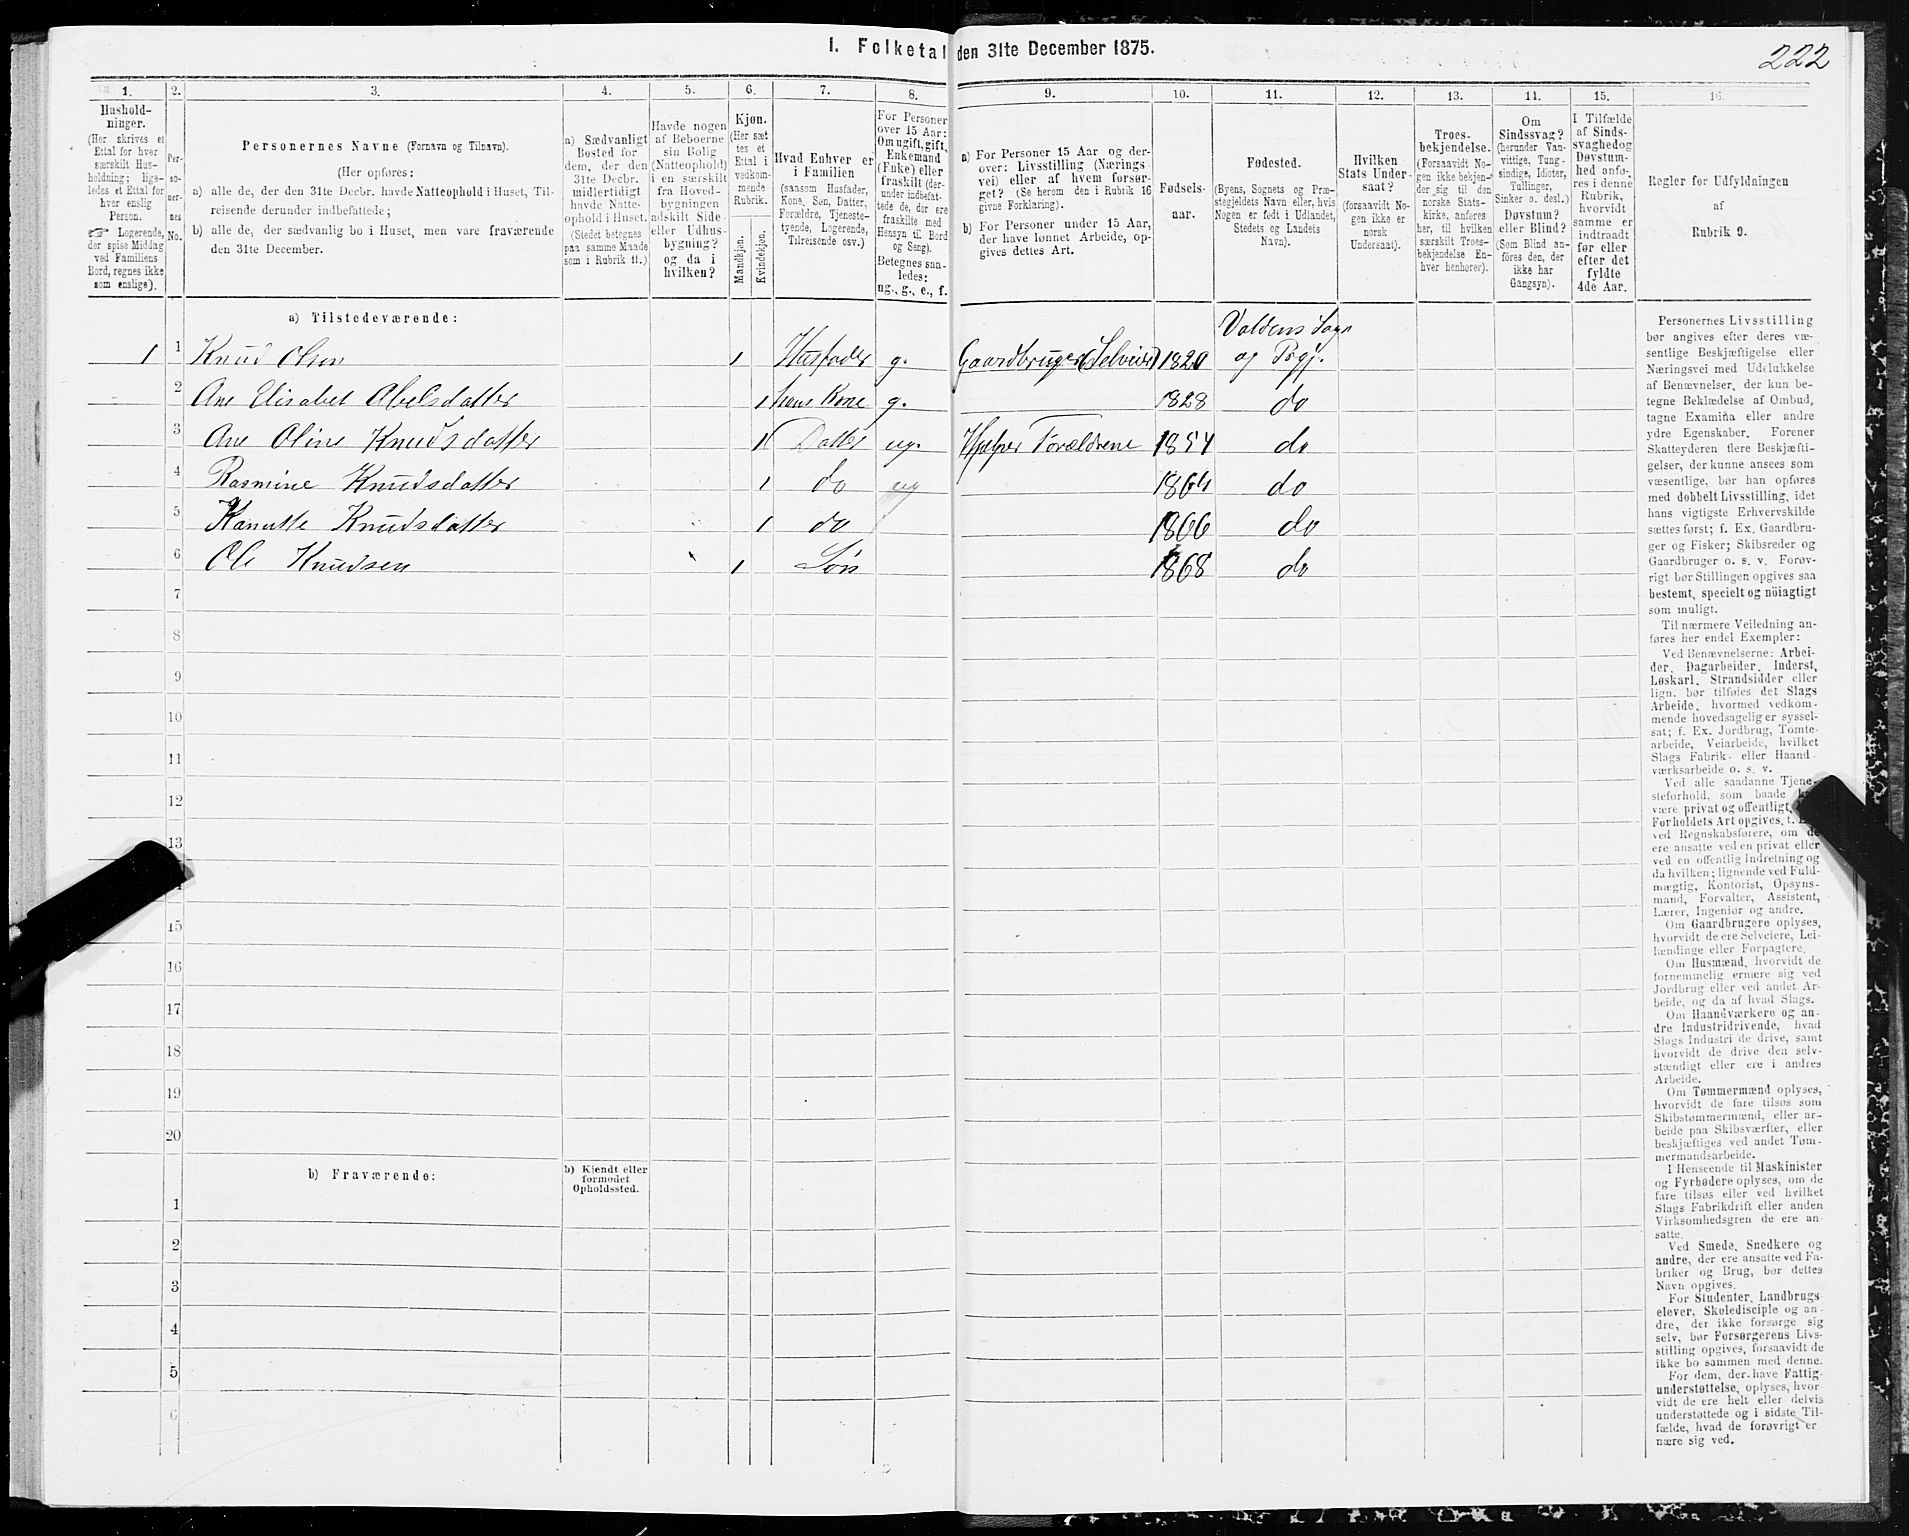 I. Folketal den 31te December 1875.
222
1. 2. 3. 4. 5. 6. 7. 8. 9. 10. 11. 12. 13. 14. 15. 16.
Hushold-
ninger.
(Her skrives et
Ettal for hver
særskilt Hus-
holdning; lige-
ledes et Ettal for
hver enslig
Person.
☞ Logerende,
der spise Middag
ved Familiens
Bord, regnes ikke
som enslige).
Per-
so-
ner-
nes
No.
Personernes Navne (Fornavn og Tilnavn).
(Her opføres:
a) alle de, der den 31te Decbr. havde Natteophold i Huset, Til-
reisende derunder indbefattede;
b) alle de, der sædvanlig bo i Huset, men vare fraværende
den 31te December.
a) Sædvanligt
Bosted for
dem, der den
31te Decbr.
midlertidigt
havde Natte-
ophold i Huset.
(Stedet betegnes
paa samme Maade
som i Rubrik 11.)
Havde nogen
af Beboerne
sin Bolig
(Natteophold)
i en særskilt
fra Hoved-
bygningen
adskilt Side-
eller Udhus-
bygning?
og da i
hvilken?
Kjøn.
(Her sæt
tes et
Ettal i
vedkom-
mende
Rubrik.
Mandkjøn.
Kvindekjøn.
Hvad Enhver er
i Familien
(saasom Husfader,
Kone, Søn, Datter,
Forældre, Tjeneste-
tyende, Logerende,
Tilreisende osv.)
For Personer
over 15 Aar:
Om ugift, gift,
Enkemand
(Enke) eller
fraskilt (der-
under indbefat-
tede de, der ere
fraskilte med
Hensyn til Bord
og Seng).
Betegnes saa-
ledes:
ug., g., e., f.
a) For Personer 15 Aar og der-
over: Livsstilling (Nærings-
vei) eller af hvem forsør-
get? (Se herom den i Rubrik 16
givne Forklaring).
b) For Personer under 15 Aar,
der have lønnet Arbeide, op-
gives dettes Art.
Fødsels-
aar.
Fødested.
(Byens, Sognets og Præ-
stegjeldets Navn eller, hvis
Nogen er født i Udlandet,
Stedets og Landets
Navn).
Hvilken
Stats Under-
saat?
(forsaavidt No-
gen ikke er
norsk
Undersaat).
Troes-
bekjendelse.
(Forsaavidt No-
gen ikke bekjen-
der sig til den
norske Stats-
kirke, anføres
her, til hvilken
særskilt Troes-
bekjendelse En-
hver henhører).
Om
Sindssvag?
(herunder Van-
vittige, Tung-
sindige, Idioter,
Tullinger,
Sinker o. desl.)
Døvstum?
eller Blind?
(Som Blind an-
føres den, der
ikke har
Gangsyn).
I Tilfælde
af Sinds-
svaghed og
Døvstum-
hed anfø-
res i denne
Rubrik,
hvorvidt
samme er
indtraadt
før eller
efter det
fyldte
4de Aar.
Regler for Udfyldningen
af
Rubrik 9.
a) Tilstedeværende:
1 1 Knud Olsen 1 Husfader g. Gaardbruger (Selveier) 1820 Valdens Sogn og Prgj.
2 Ane Elisabet Abelsdatter 1 hans Kone g. 1828 do
3 Ane Oline Knudsdatter 1 Datter ug. Hjelper Forældrene 1854 do
4 Rasmine Knudsdatter 1 do ug 1864 do
5 Kanutte Knudsdatter 1 do 1866 do
6 Ole Knudsen 1 Søn 1868 do
7
8
9
10
11
12
13
15
16
17
18
19
20
b) Fraværende:
b) Kjendt eller
formodet
Opholdssted.
1
2
3
4
5
6
Personernes Livsstilling
bør angives efter deres væ-
sentlige Beskjæftigelse eller
Næringsvei med Udelukkelse
af Benævnelser, der kun be-
tegne Beklædelse af Ombud,
tagne Examina eller andre
ydre Egenskaber. Forener
Skatteyderen flere Beskjæfti-
gelser, der kunne ansees som
væsentlige, bør han opføres
med dobbelt Livsstilling, idet
hans vigtigste Erhvervskilde
sættes først; f. Ex. Gaardbru-
ger og Fisker; Skibsreder og
Gaardbruger o. s. v. Forøv-
rigt bør Stillingen opgives saa
bestemt, specielt og nöiagtigt
som muligt.
Til nærmere Veiledning an-
føres her endel Exempler:
Ved Benævnelserne: Arbei-
der, Dagarbeider, Inderst,
Løskarl, Strandsidder eller
lign. bør tilføies det Slags
Arbeide, hvormed vedkom-
mende hovedsagelig er syssel-
sat; f. Ex. Jordbrug, Tomte-
arbeide, Veiarbeide, hvilket
Slags Fabrik- eller Haand-
værksarbeide o. s. v.
Ved alle saadanne Tjene-
steforhold, som baade
være privat og offentligt,
Forholdets Art opgives, t.
ved Regnskabsførere, om de
ere ansatte ved en privat eller
ved en offentlig Indretning og
da hvilken; lignende ved Fuld-
mægtig, Kontorist, Opsyns-
mand, Forvalter, Assistent,
Lærer, Ingeniør og andre.
Om Gaardbrugere oplyses,
hvorvidt de ere Selveiere, Lei-
lændinge eller Forpagtere.
Om Husmænd, hvorvidt de
fornemmelig ernære sig ved
Jordbrug eller ved andet Ar-
beide, og da af hvad Slags.
Om Haandværkere og an-
dre Industridrivende, hvad
Slags Industri de drive, samt
hvorvidt de drive den selv-
stændigt eller ere i andres
Arbeide.
Om Tømmermænd oplyses,
hvorvidt de fare tilsøs som
Skibstømmermænd, eller ar-
beide paa Skibsværfter, eller
beskjæftiges ved andet Tøm-
mermandsarbeide.
I Henseende til Maskinister
og Fyrbødere oplyses, om de
fare tilsøs eller ved hvilket
Slags Fabrikdrift eller anden
Virksomhedsgren de ere an-
satte.
Ved Smede, Snedkere og
andre, der ere ansatte ved Fa-
briker og Brug, bør dettes
Navn opgives.
For Studenter, Landbrugs-
elever, Skoledisciple og an-
dre, der ikke forsørge sig
selv, bør Forsørgerens Livs-
stilling opgives, forsaavidt de
ikke bo sammen med denne.
For dem, der have Fattig-
understøttelse, oplyses, hvor-
vidt de ere helt eller delvis
understøttede og i sidste Til-
fælde, hvad de forøvrigt er-
nære sig ved.